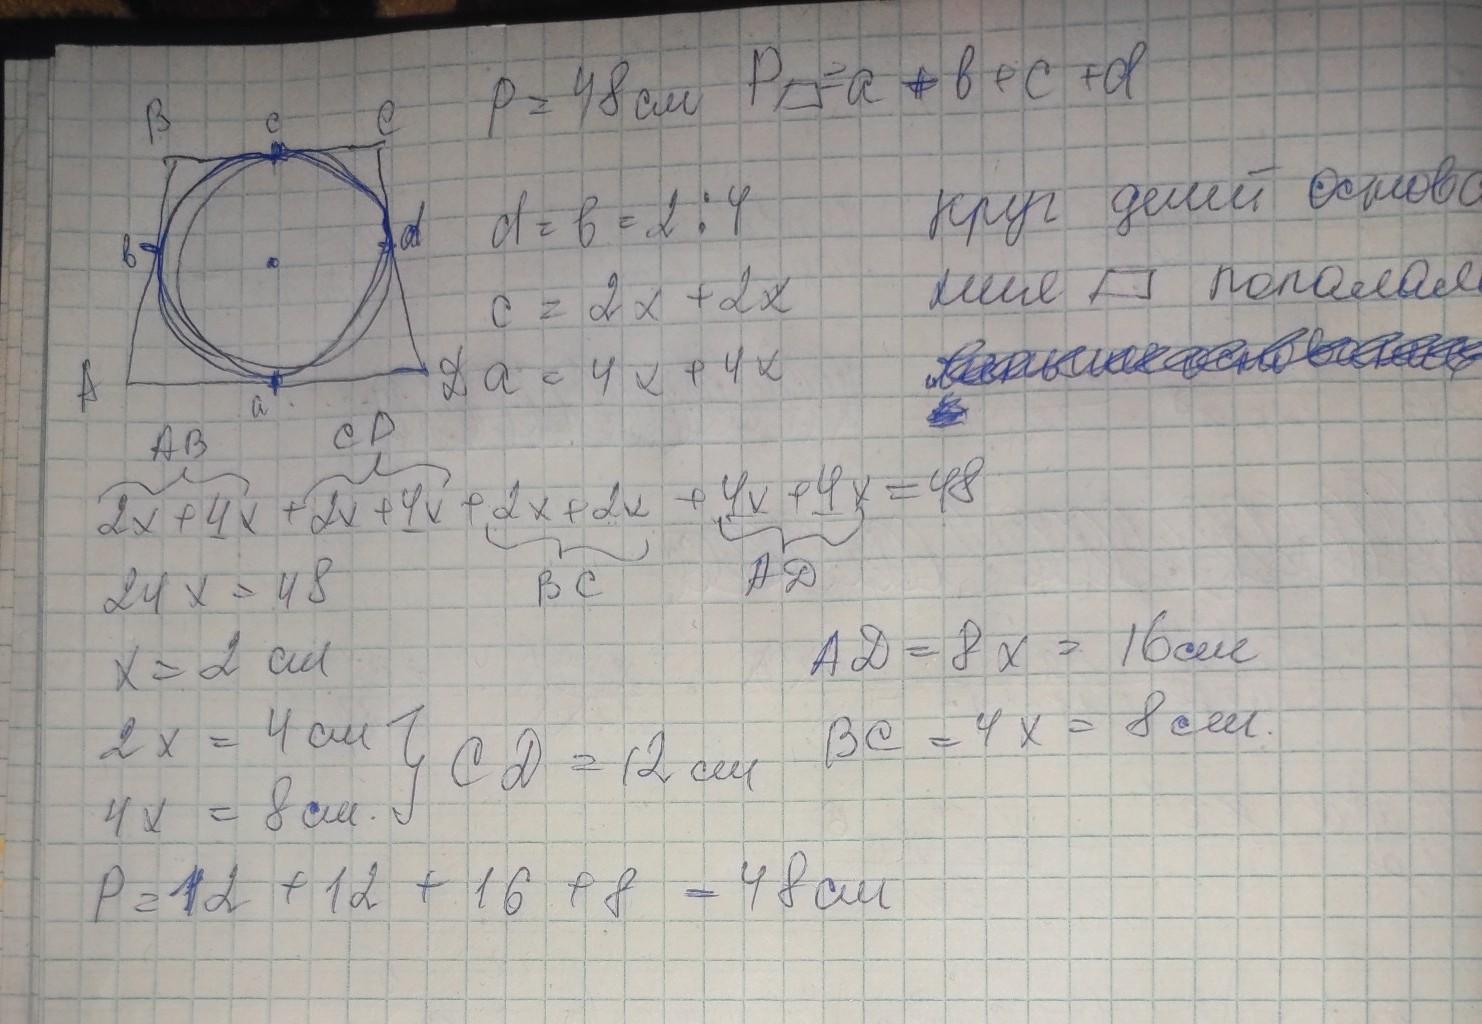 P = 48 см P▱ = a + в + c + d
B c C
d = в = 2 : 4 круг делит основа
в d
c = 2x + 2x ния ▱ пополам
A a D a = 4x + 4x
AB CD
2x + 4x + 2x + 4x + 2x + 2x + 4x + 4x = 48
BC AD
24x = 48
x = 2 см AD = 8x = 16 см
2x = 4 см } CD = 12 см BC = 4x = 8 см.
4x = 8 см.
P = 12 + 12 + 16 + 8 = 48 см